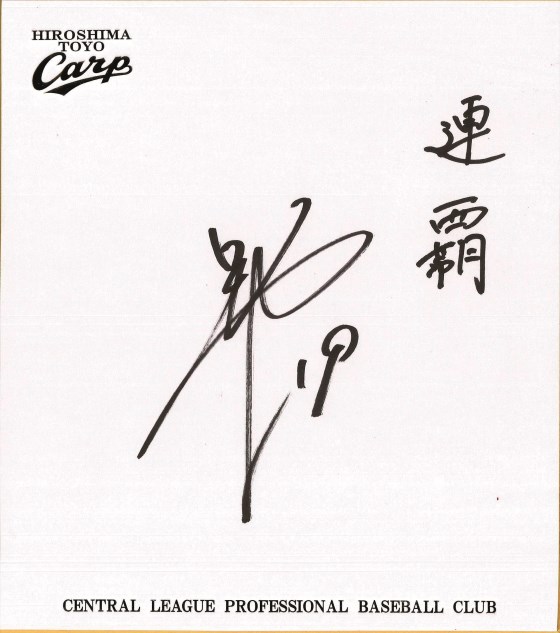 HIROSHIMA
TOYO
Carp
連覇
19
CENTRAL LEAGUE PROFESSIONAL BASEBALL CLUB